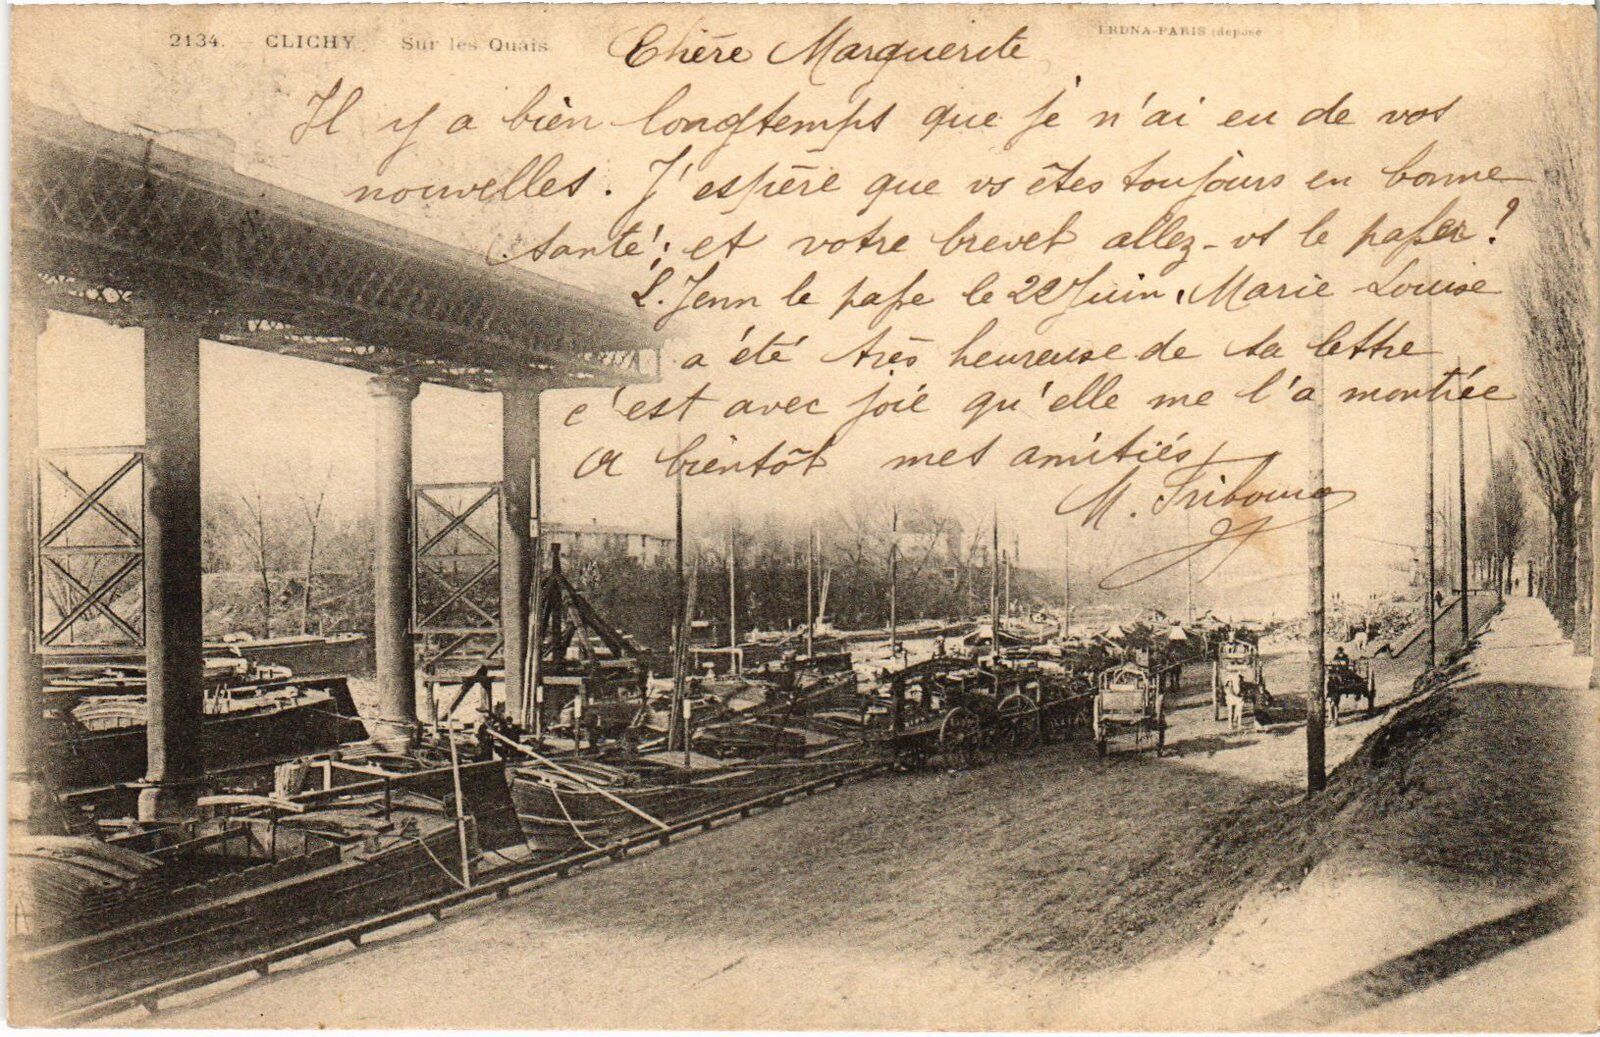 2134. — CLICHY. Sur les Quais
ERDNA-PARIS (déposé
Chère Marguerite
Il y a bien longtemps que je n'ai eu de vos
nouvelles. J'espère que vs êtes toujours en bonne
santé; et votre brevet allez-vs le passer?
L. Jenn le passe le 22 Juin. Marie Louise
a été très heureuse de sa lettre
c'est avec joie qu'elle me l'a montrée
A bientôt mes amitiés
M. Fribourg